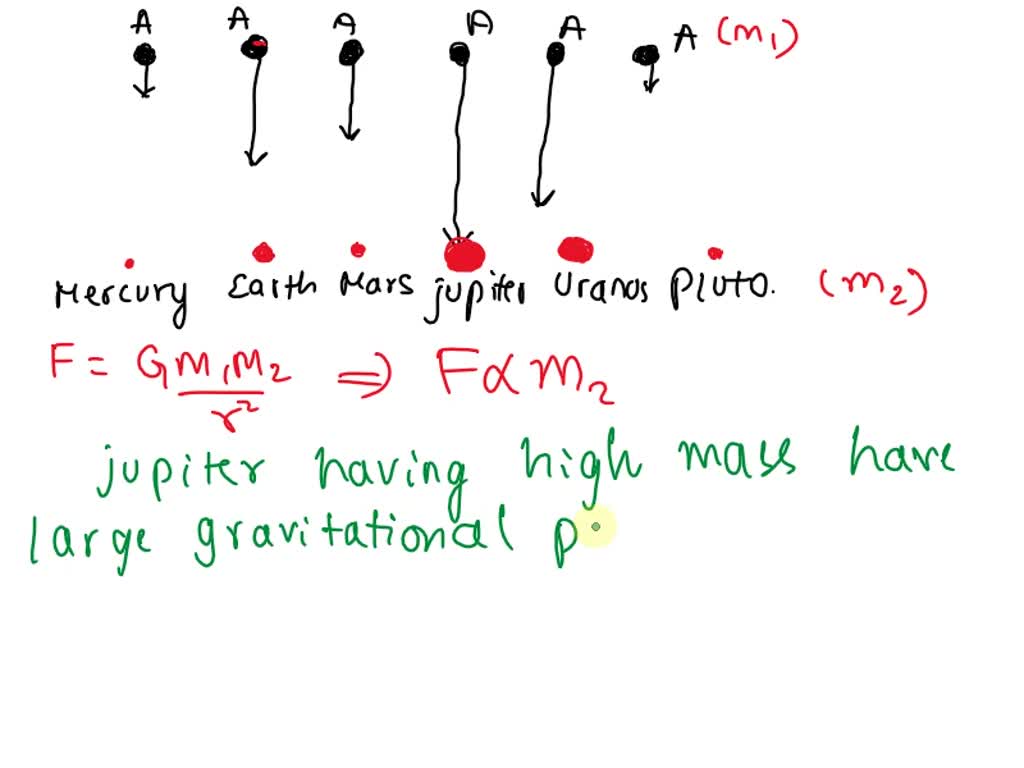 A A A A A A (m₁)
Mercury Earth Mars jupiter Uranus pluto. (m₂)
F = G m₁ m₂ / r² ⇒ F ∝ m₂
jupiter having high mass have
large gravitational p